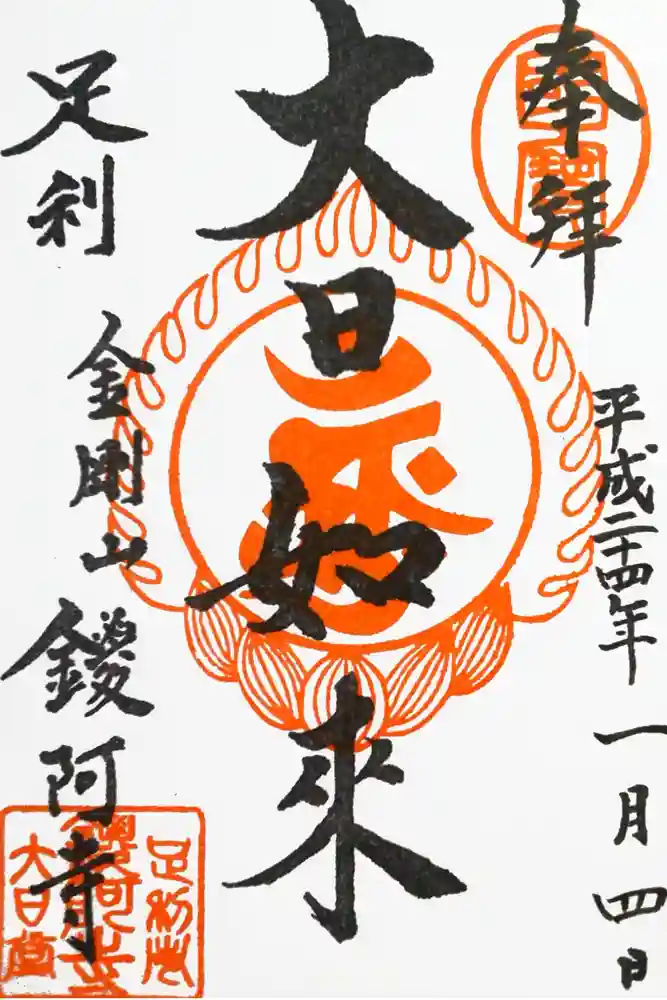 奉拜
平成二十四年 一月四日
大日如來
足利 金剛山 鑁阿寺
足利庄
鑁阿寺
大日堂